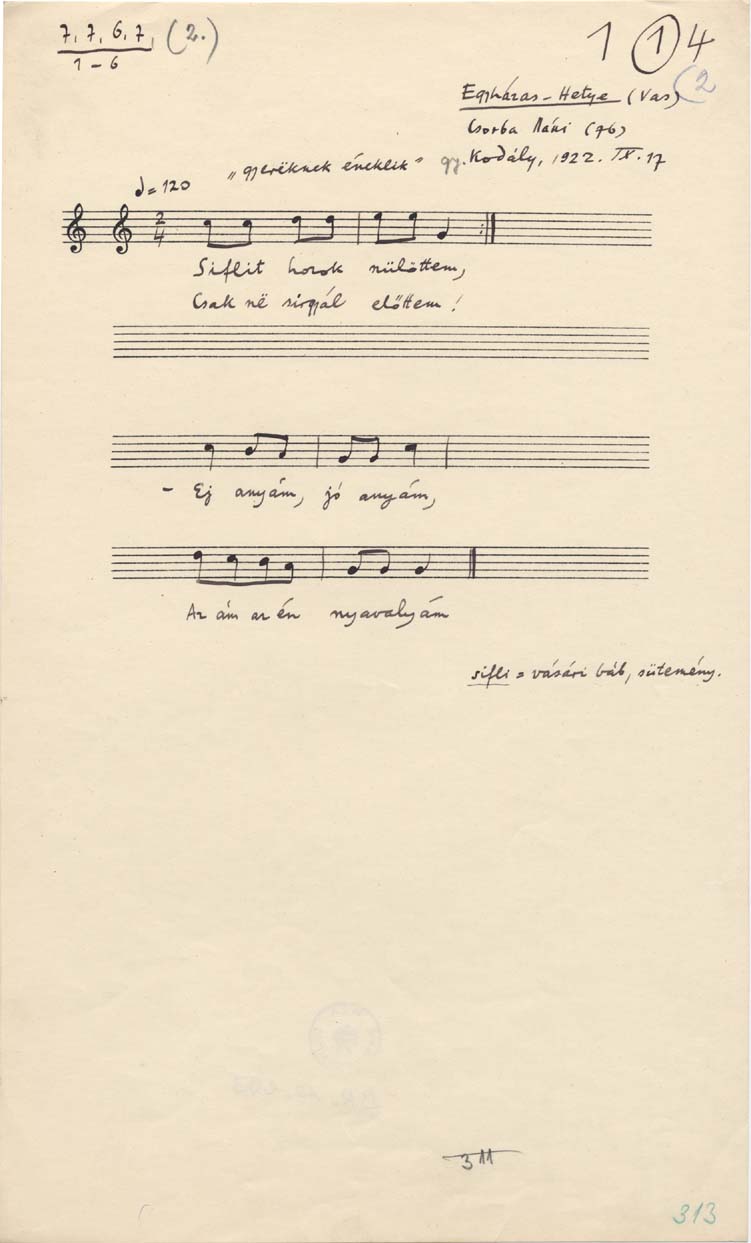 7, 7, 6, 7, (2.)
1 - 6
1 (1) 4
(2
Egyházas-Hetye (Vas)
Csorba Náni (76)
gy. Kodály, 1922. IX. 17
♩ = 120 „gyerëknek éneklik"
2
4
Siflit hozok nülöttem,
Csak në sirgyál előttem!
- Ej anyám, jó anyám,
Az ám az én nyavalyám
sifli = vásári báb, sütemény.
311
313